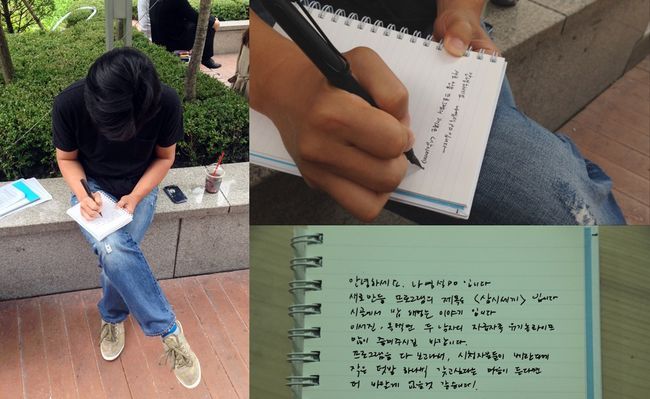 안녕하세요. 나영석PD 입니다
새로 만든 프로그램의 제목은 <삼시세끼> 입니다
시골에서 밥 해먹는 이야기 입니다
이서진, 옥택연 두 남자의 자급자족 유기농라이프
많이 즐겨주시길 바랍니다.
프로그램을 다 보고나서, 시청자분들이 베란다에
작은 텃밭 하나씩 갖고싶다는 마음이 든다면
더 바랄게 없을것 같습니다!